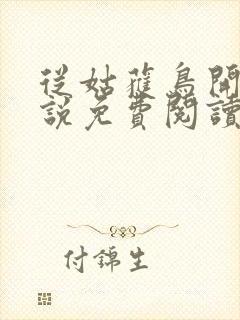 從姑獲鳥開
說免費閱讀
付錦生